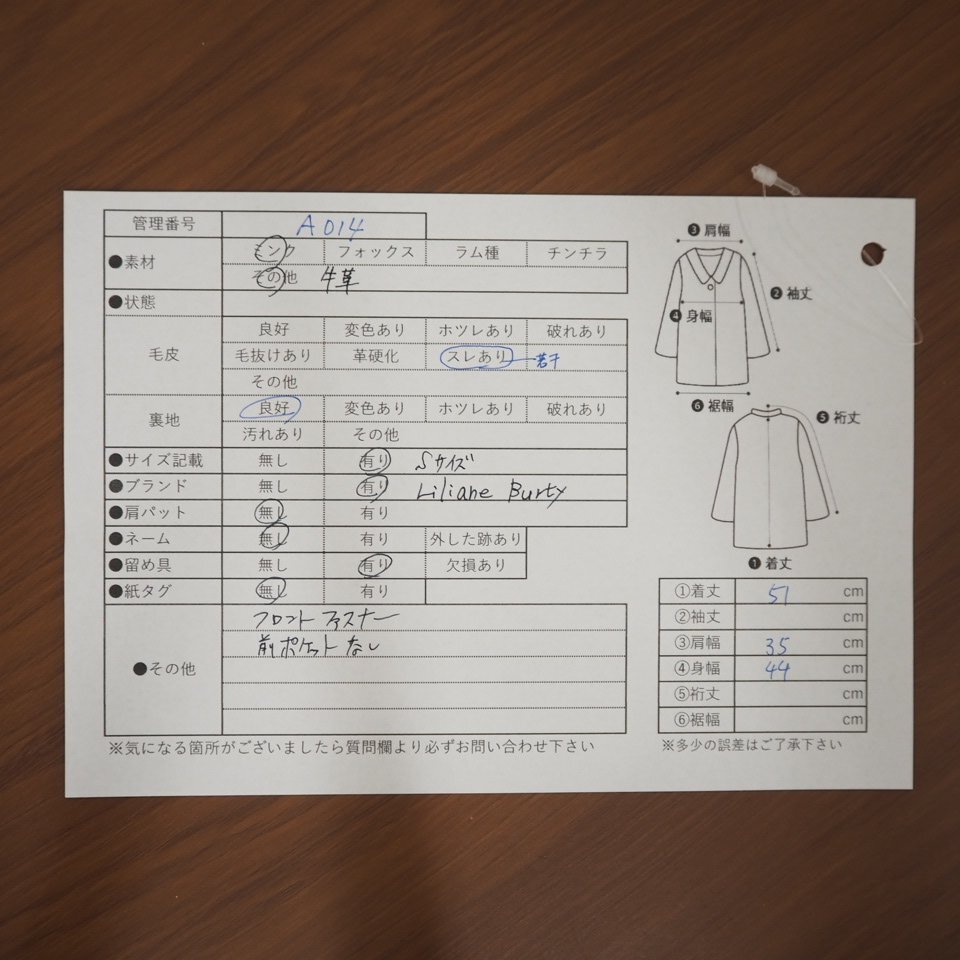 管理番号 A014
●素材 ミンク フォックス ラム種 チンチラ
その他 牛革
●状態
毛皮 良好 変色あり ホツレあり 破れあり
毛抜けあり 革硬化 スレあり 若干
その他
裏地 良好 変色あり ホツレあり 破れあり
汚れあり その他
●サイズ記載 無し 有り Sサイズ
●ブランド 無し 有り Liliane Burty
●肩パット 無し 有り
●ネーム 無し 有り 外した跡あり
●留め具 無し 有り 欠損あり
●紙タグ 無し 有り
●その他
フロントファスナー
前ポケットなし
※気になる箇所がございましたら質問欄より必ずお問い合わせ下さい
❸肩幅
❷袖丈
❹身幅
❻裾幅
❺裄丈
❶着丈
①着丈 51 cm
②袖丈 cm
③肩幅 35 cm
④身幅 44 cm
⑤裄丈 cm
⑥裾幅 cm
※多少の誤差はご了承下さい